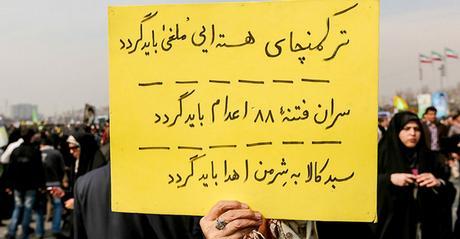 ترکمنچای هسته‌ایی مُلغیٰ باید گردد
سران فتنهٔ ۸۸ اعدام باید گردد
سبد کالا به شِرمن اهدا باید گردد